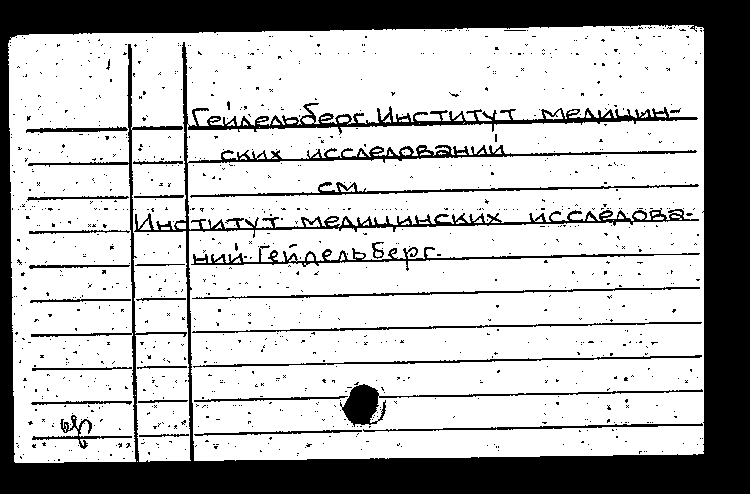 Гейдельберг. Институт медицин-
ских исследований
см.
Институт медицинских исследова-
ний. Гейдельберг.